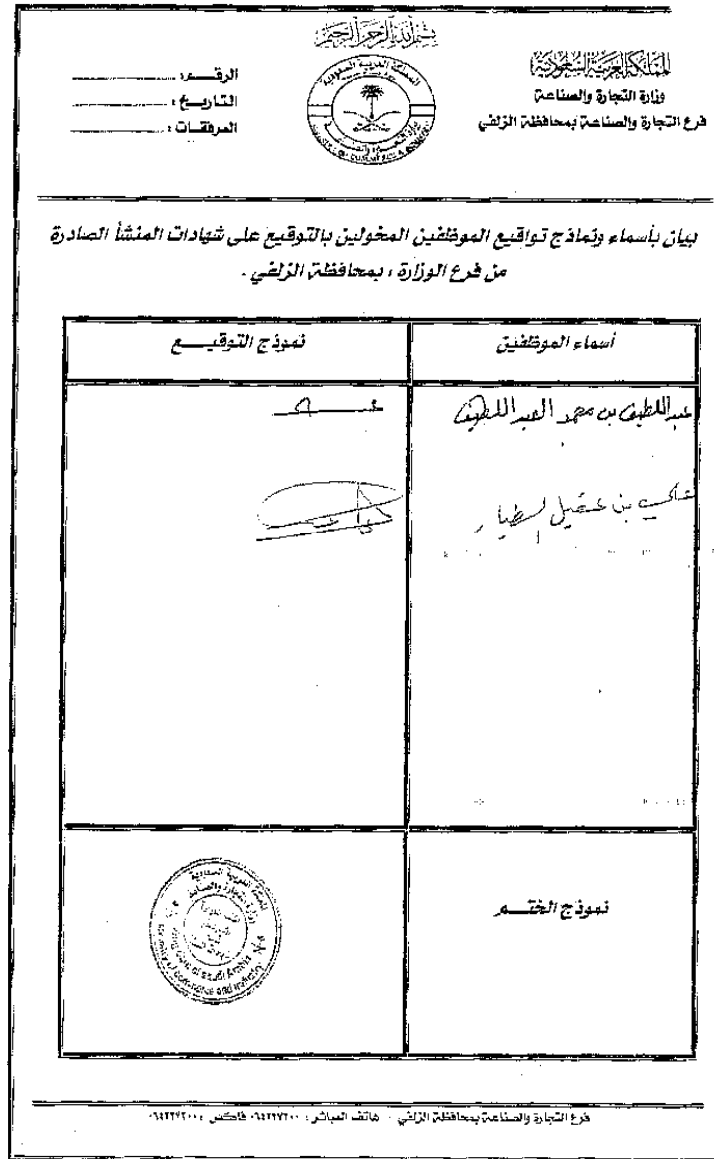 بسم الله الرحمن الرحيم
المملكة العربية السعودية
وزارة التجارة والصناعة
فرع التجارة والصناعة بمحافظة الزلفي
الرقـــم :
التاريـــخ :
المرفقـات :
المملكة العربية السعودية
بيان بأسماء ونماذج تواقيع الموظفين المخولين بالتوقيع على شهادات المنشأ الصادرة
من فرع الوزارة ، بمحافظة الزلفي .
أسماء الموظفين
نموذج التوقيـــع
عبداللطيف بن محمد العبداللطيف
بن عقيل الطيار
نموذج الختـــم
المملكة العربية السعودية
وزارة التجارة والصناعة
Kingdom of Saudi Arabia
Ministry of commerce and industry
فرع التجارة والصناعة بمحافظة الزلفي . هاتف المباشر : ٠٦٤٢٢٧٢٠٠ فاكس :